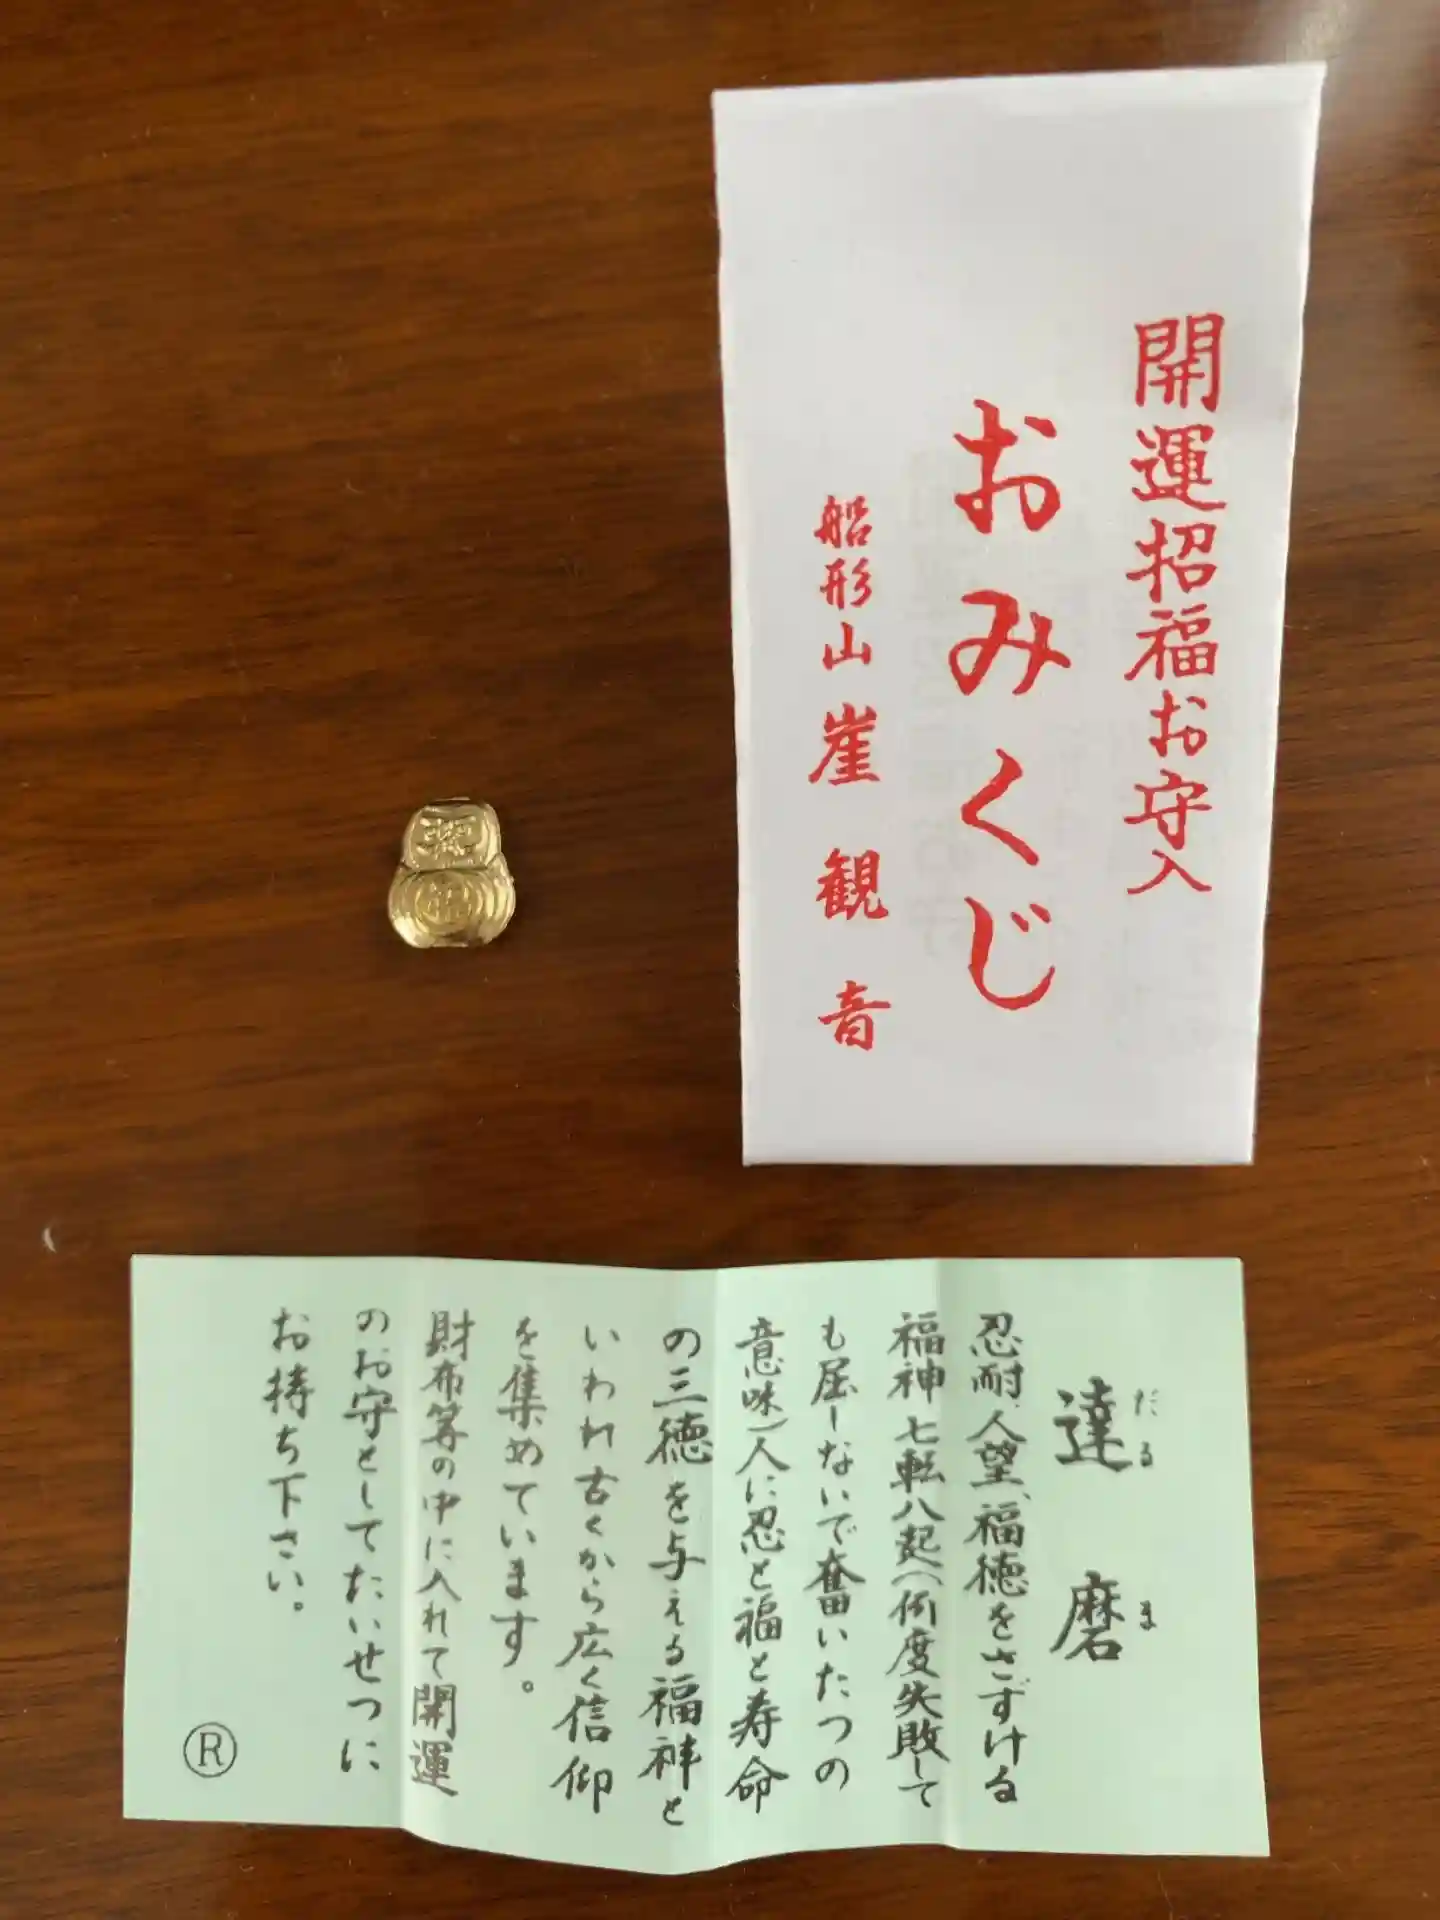 開運招福お守入
おみくじ
船形山崖観音
達磨
だるま
忍耐、人望、福徳をさずける
福神七転八起(何度失敗して
も屈しないで奮いたつの
意味)人に忍と福と寿命
の三徳を与える福神と
いわれ古くから広く信仰
を集めています。
財布等の中に入れて開運
のお守としてたいせつに
お持ち下さい。
Ⓡ